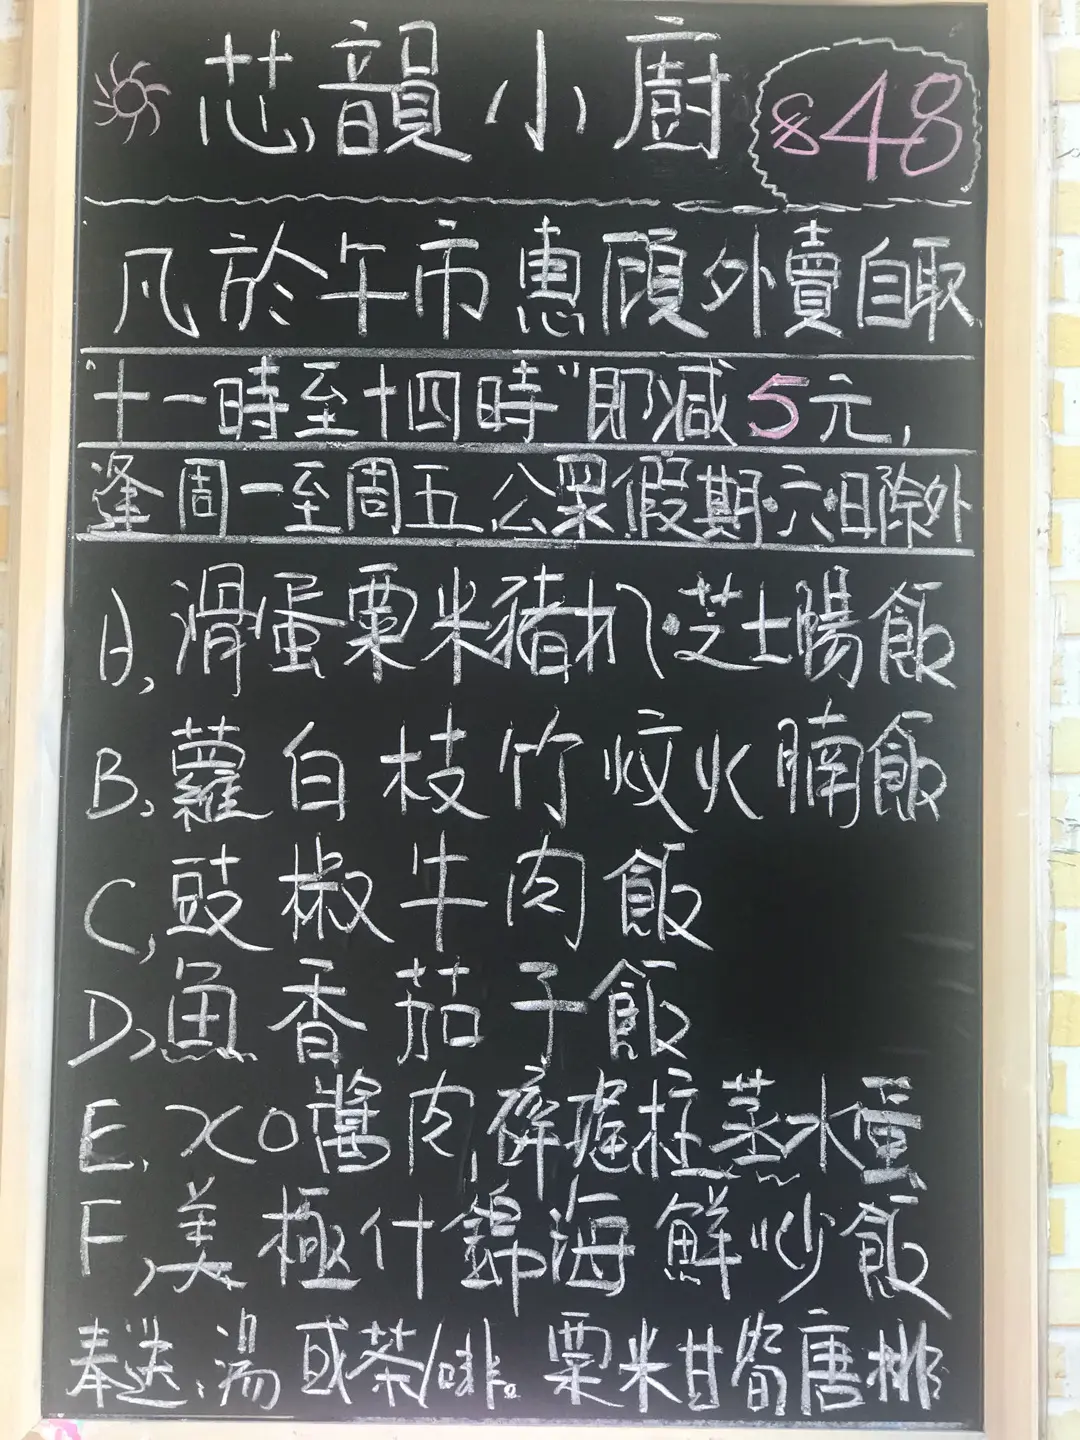 芯韻小廚 $48
凡於午市惠顧外賣自取
"十一時至十四時"即減5元,
逢周一至周五公眾假期·六·日除外
A, 滑蛋粟米豬扒·芝士腸飯
B, 蘿白枝竹炆火腩飯
C, 豉椒牛肉飯
D, 魚香茄子飯
E, XO醬肉瑤柱蒸水蛋
F, 美極什錦海鮮炒飯
奉送:湯或茶/啡。粟米甘筍唐排